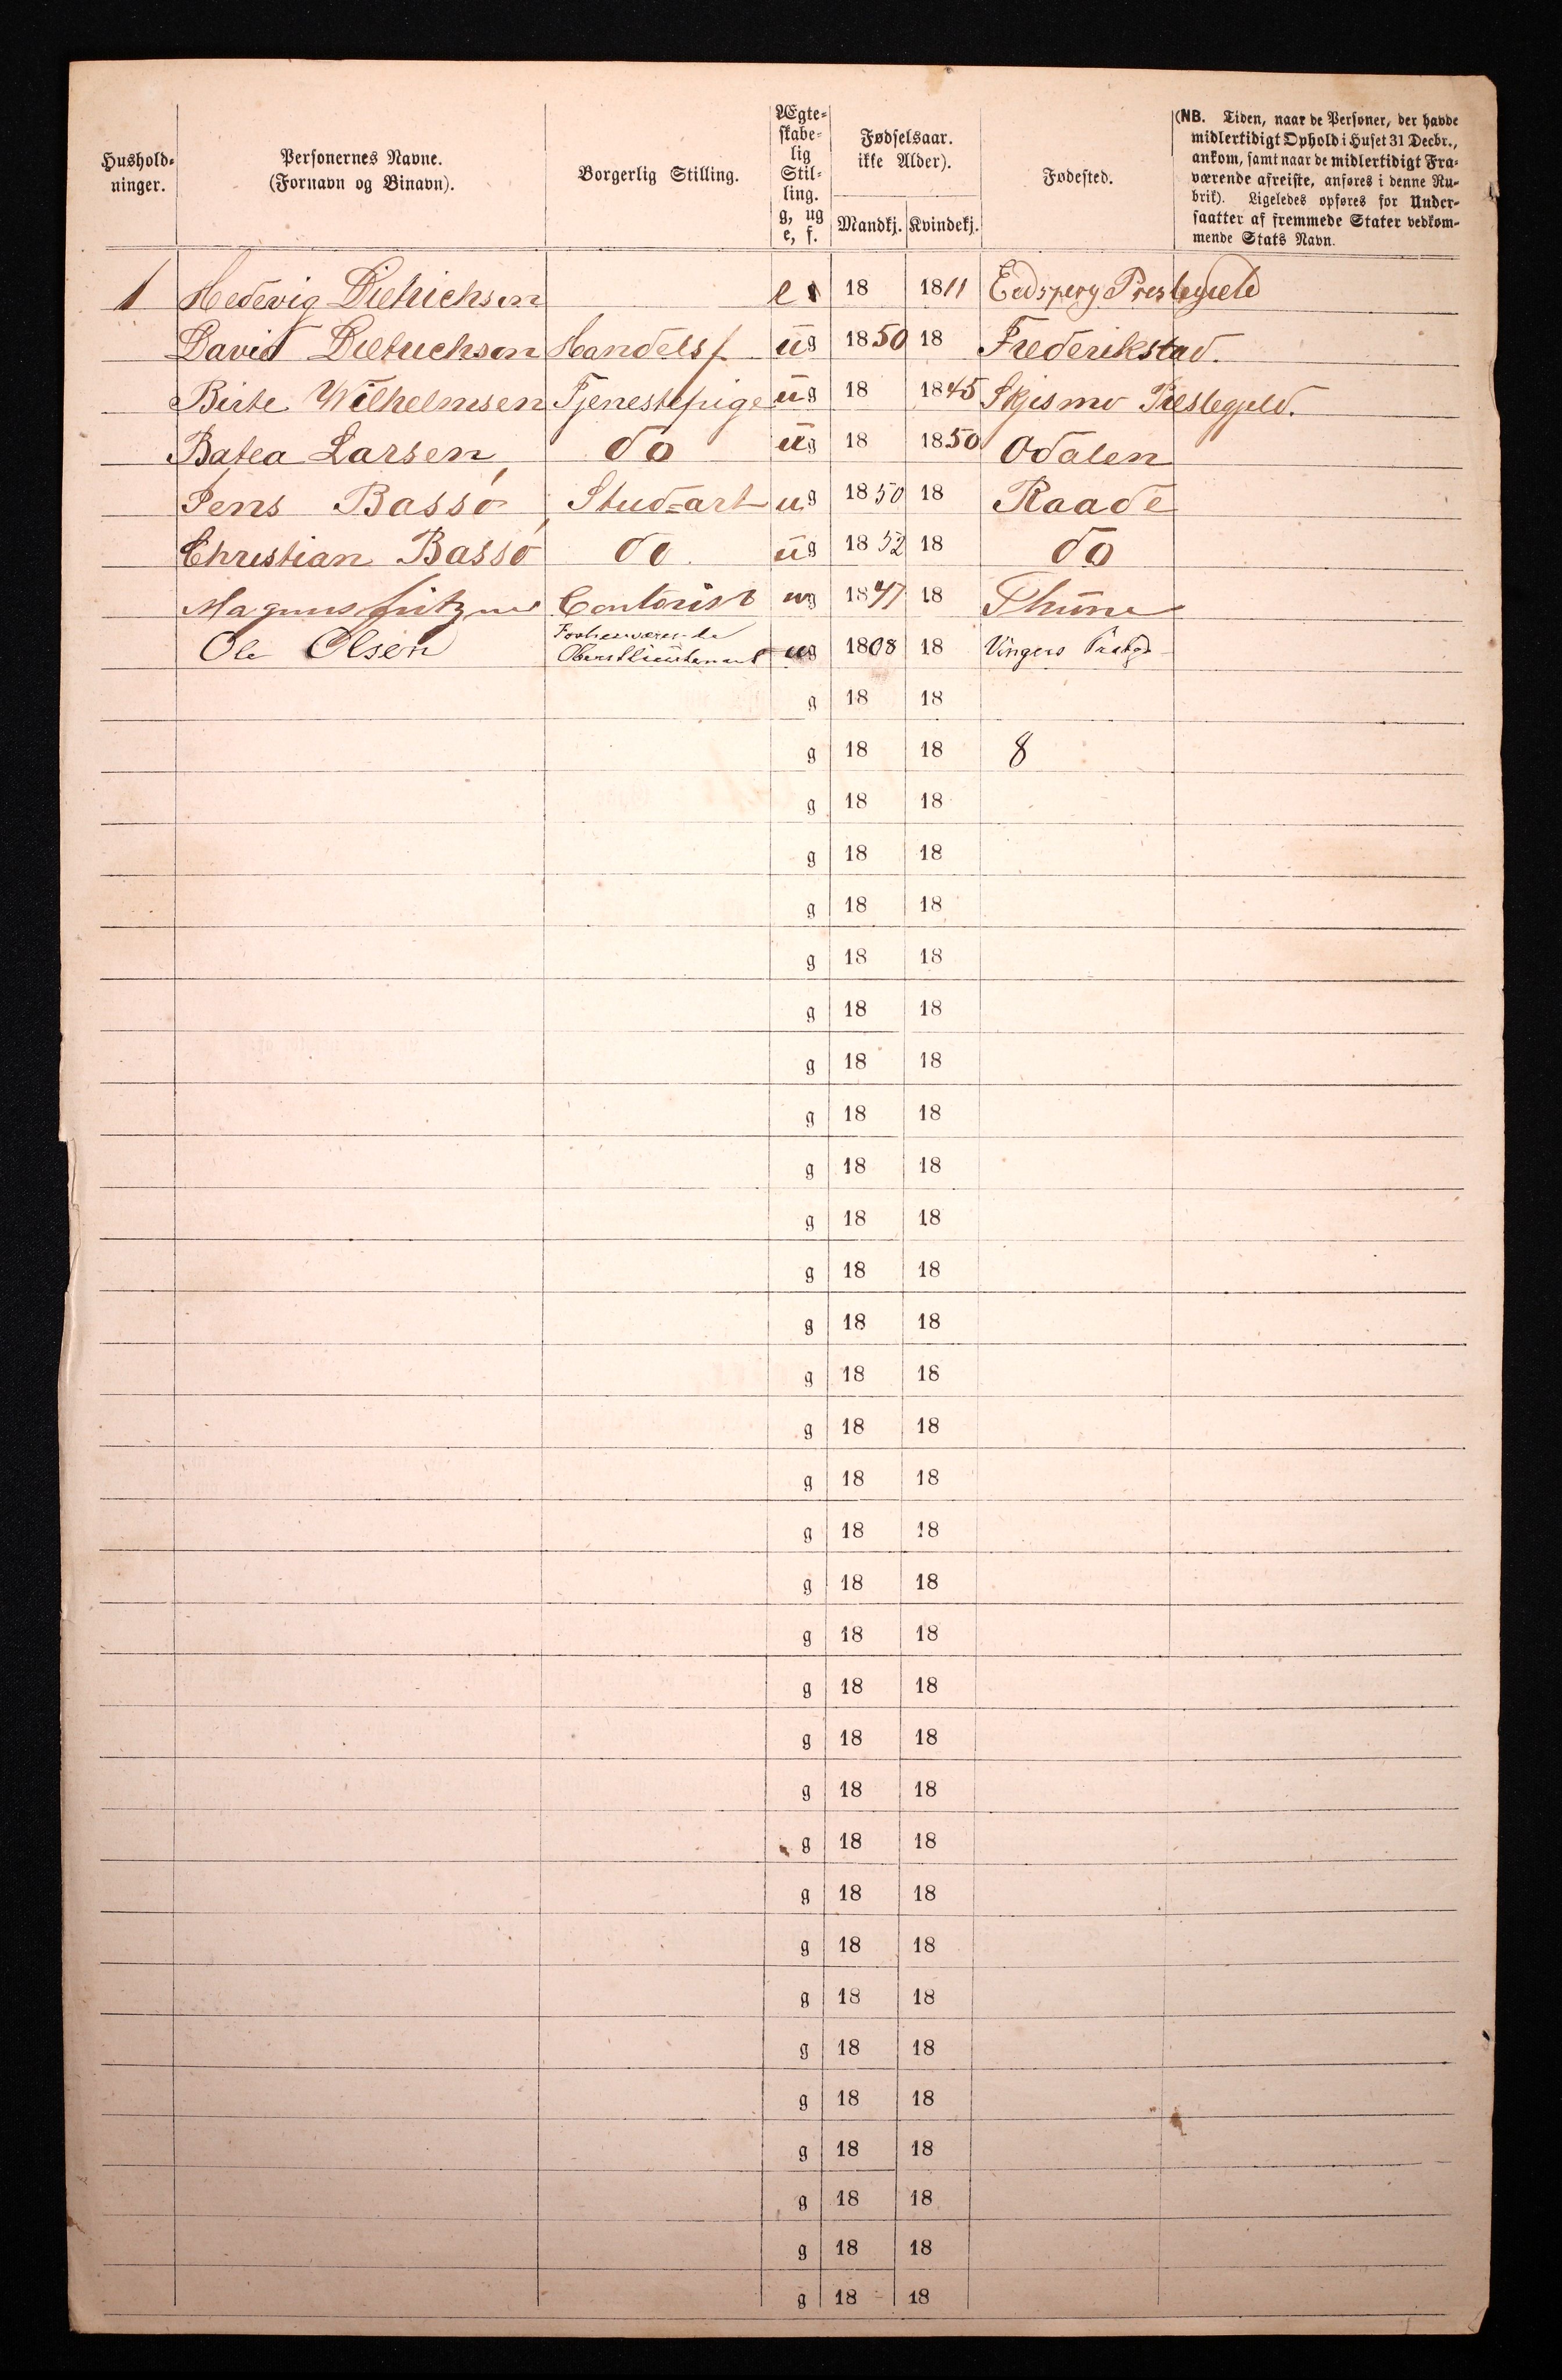 Hushold-
ninger.
Personernes Navne.
(Fornavn og Binavn).
Borgerlig Stilling.
Ægte-
skabe-
lig
Stil-
ling.
g, ug
e, f.
Fødselsaar.
ikke Alder).
Mandkj. Kvindekj.
Fødested.
(NB. Tiden, naar de Personer, der havde
midlertidigt Ophold i Huset 31 Decbr.,
ankom, samt naar de midlertidigt Fra-
værende afreiste, anføres i denne Ru-
brik). Ligeledes opføres for Under-
saatter af fremmede Stater vedkom-
mende Stats Navn.
1 Hedevig Dietrichsen e 18 1811 Eidsberg Prestegjeld
David Dietrichsen Handelsf ug 1850 18 Frederikstad.
Birte Wilhelmsen Tjenestepige ug 18 1845 Prestegjeld.
Batea Larsen do ug 18 1850 Odalen
Jens Bassø Stud-art ug 1850 18 Raade
Christian Bassø do. ug 1852 18 do
Magnus Contorist ug 1847 18 Thune
Ole Olsen Oberstlieutenant ug 1808 18 Vingers
g 18 18
g 18 18 8
g 18 18
g 18 18
g 18 18
g 18 18
g 18 18
g 18 18
g 18 18
g 18 18
g 18 18
g 18 18
g 18 18
g 18 18
g 18 18
g 18 18
g 18 18
g 18 18
g 18 18
g 18 18
g 18 18
g 18 18
g 18 18
g 18 18
g 18 18
g 18 18
g 18 18
g 18 18
g 18 18
g 18 18
g 18 18
g 18 18